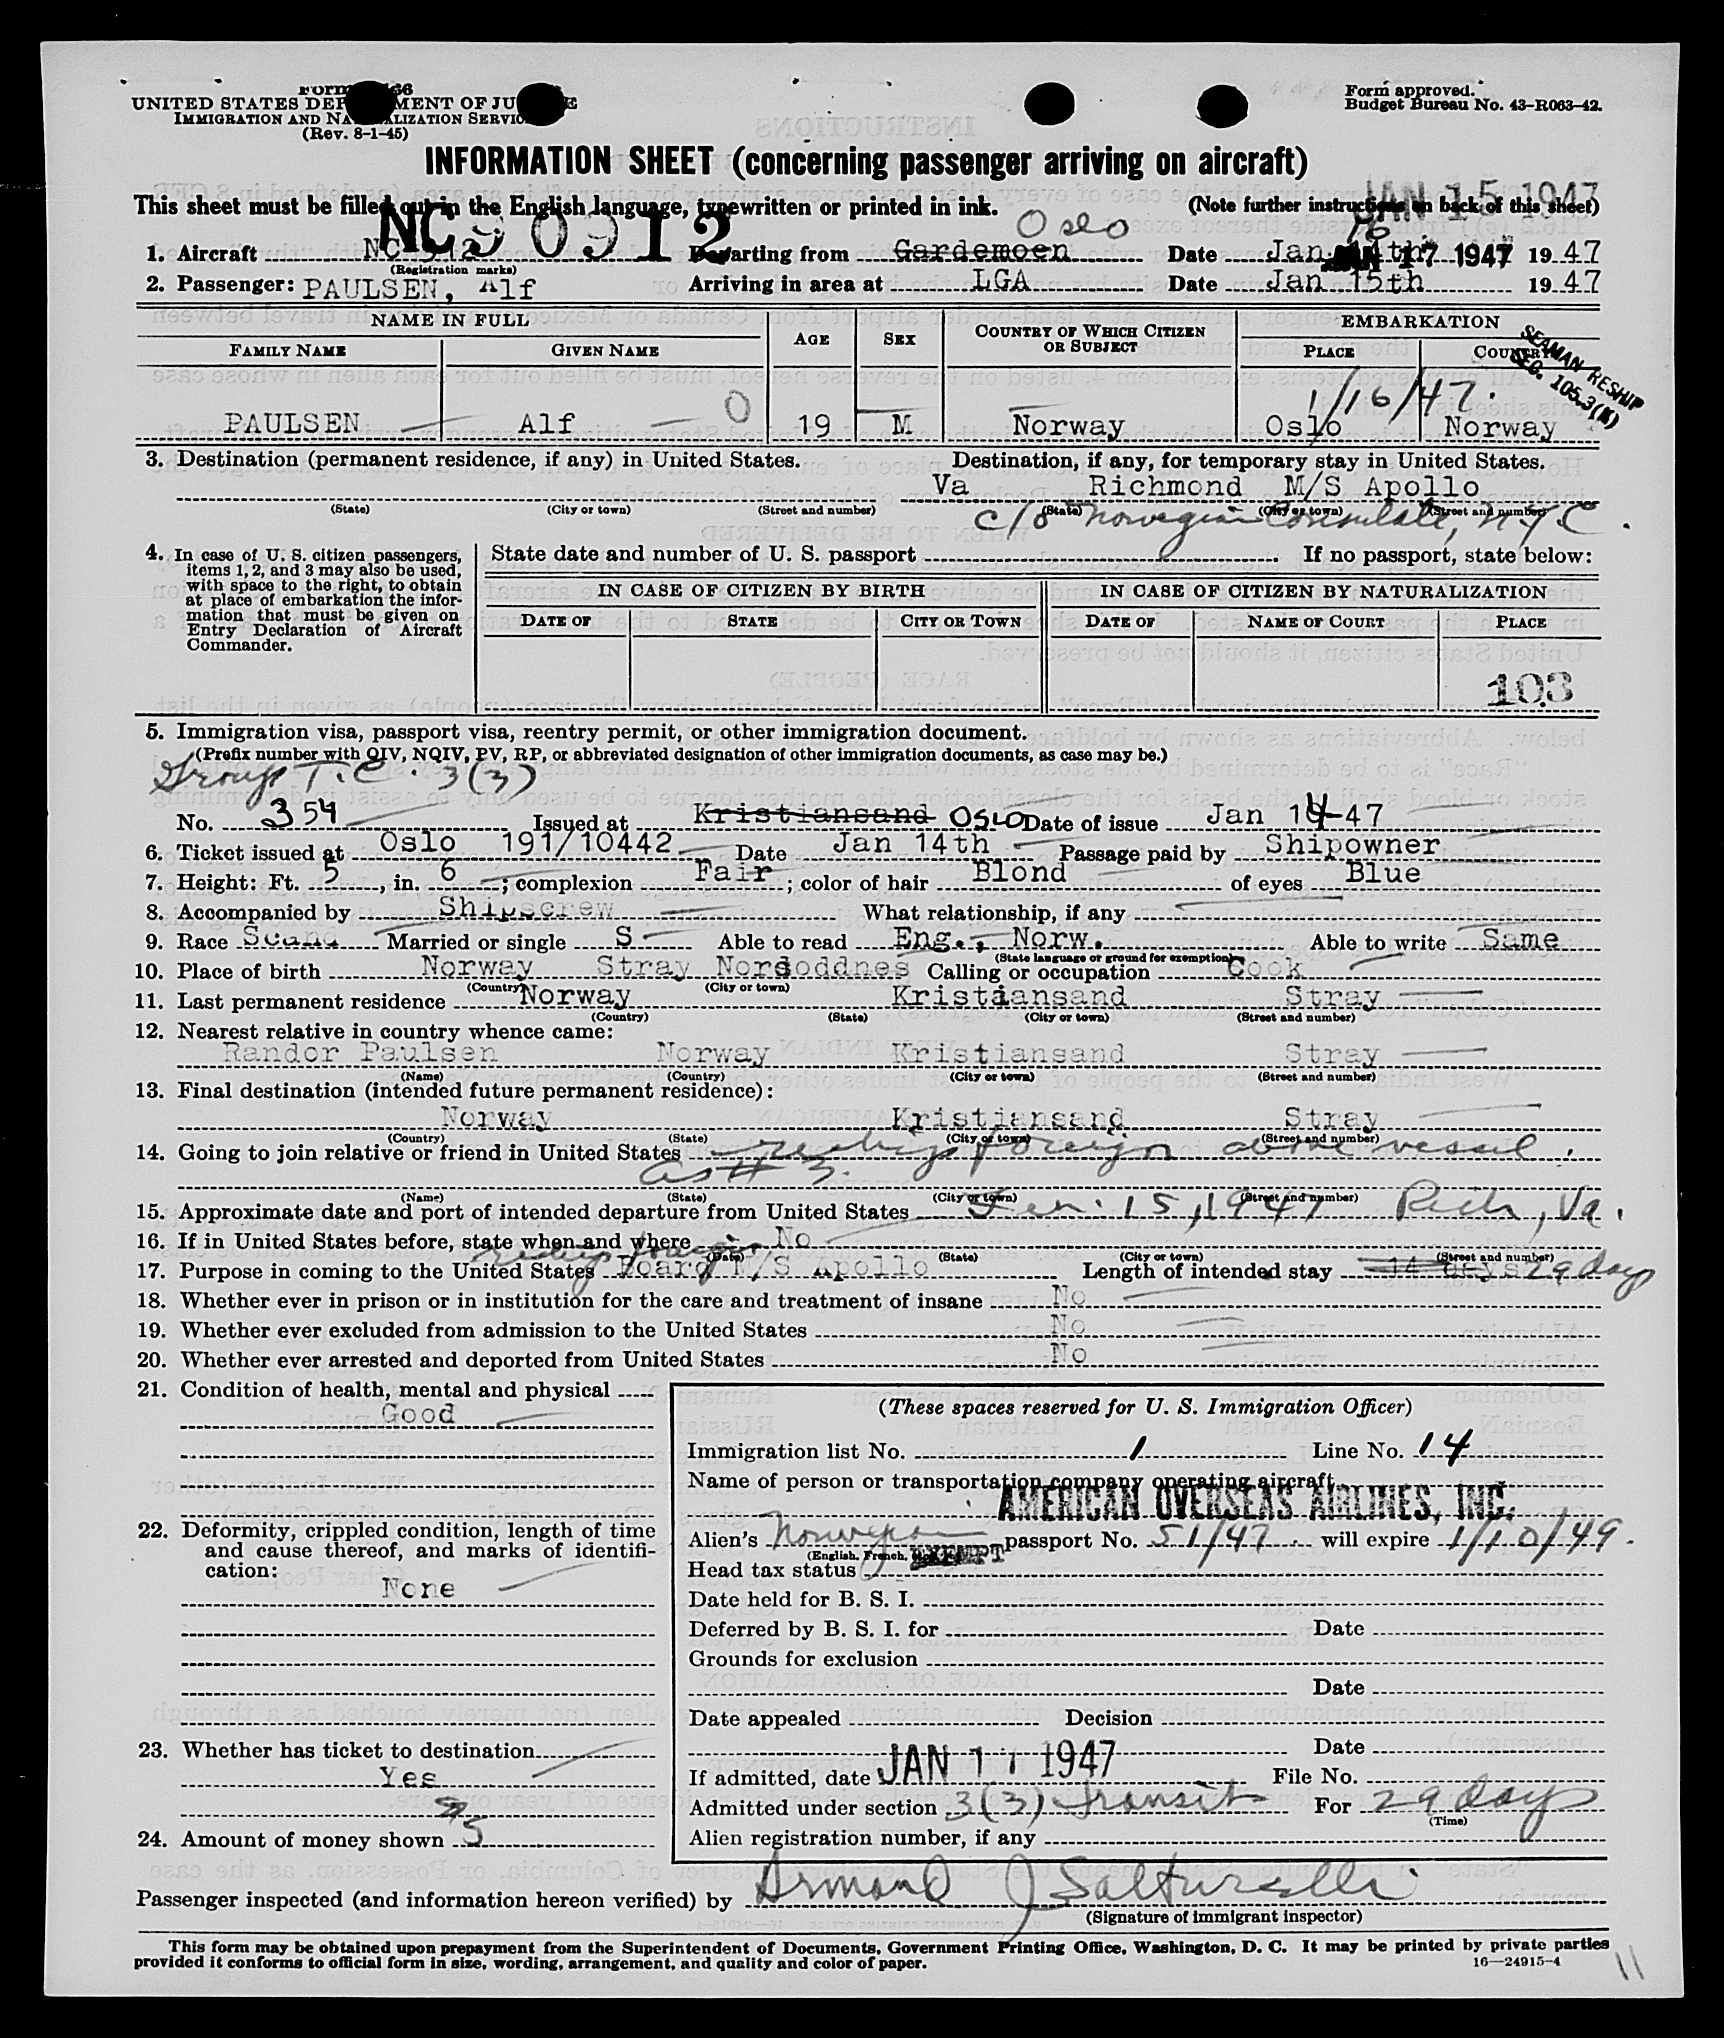 UNITED STATES DEPARTMENT OF JUSTICE
IMMIGRATION AND NATURALIZATION SERVICE
(Rev. 8-1-45)
Form approved.
Budget Bureau No. 43-R063-42.
INFORMATION SHEET (concerning passenger arriving on aircraft)
JAN 15 1947
This sheet must be filled out in the English language, typewritten or printed in ink. (Note further instructions on back of this sheet)
Oslo 16
1. Aircraft Departing from Gardemoen Date Jan 14th 1947
JAN 17 1947
(Registration marks)
2. Passenger: PAULSEN, Alf Arriving in area at LGA Date Jan 15th 1947
NAME IN FULL AGE SEX COUNTRY OF WHICH CITIZEN OR SUBJECT EMBARKATION
FAMILY NAME GIVEN NAME PLACE COUNTRY
SEAMAN RESHIP
SEC. 105.3(K)
0 1/16/47.
PAULSEN Alf 19 M Norway Oslo Norway
3. Destination (permanent residence, if any) in United States. Destination, if any, for temporary stay in United States.
Va Richmond M/S Apollo
(State) (City or town) (Street and number) (State) (City or town) (Street and number)
c/o Norwegian Consulate, N.Y.C.
4. In case of U. S. citizen passengers, items 1, 2, and 3 may also be used, with space to the right, to obtain at place of embarkation the information that must be given on Entry Declaration of Aircraft Commander.
State date and number of U. S. passport If no passport, state below:
IN CASE OF CITIZEN BY BIRTH IN CASE OF CITIZEN BY NATURALIZATION
DATE OF STATE CITY OR TOWN DATE OF NAME OF COURT PLACE
103
5. Immigration visa, passport visa, reentry permit, or other immigration document.
(Prefix number with QIV, NQIV, PV, RP, or abbreviated designation of other immigration documents, as case may be.)
Group T.C. 3(3)
No. 354 Issued at Kristiansand OSLO Date of issue Jan 14-47
6. Ticket issued at Oslo 191/10442 Date Jan 14th Passage paid by Shipowner
7. Height: Ft. 5, in. 6; complexion Fair; color of hair Blond of eyes Blue
8. Accompanied by Shipscrew What relationship, if any
9. Race Scand Married or single S Able to read Eng., Norw. Able to write Same
(State language or ground for exemption)
10. Place of birth Norway Stray Nordoddnes Calling or occupation Cook
(Country) (City or town)
11. Last permanent residence Norway Kristiansand Stray
(Country) (State) (City or town) (Street and number)
12. Nearest relative in country whence came:
Randor Paulsen Norway Kristiansand Stray
(Name) (Country) (City or town) (Street and number)
13. Final destination (intended future permanent residence):
Norway Kristiansand Stray
(Country) (State) (City or town) (Street and number)
14. Going to join relative or friend in United States reship foreign above vessel.
as # 3.
(Name) (State) (City or town) (Street and number)
15. Approximate date and port of intended departure from United States Feb. 15, 1947 Rich, Va.
16. If in United States before, state when and where No
(Date) (State) (City or town) (Street and number)
reship foreign
17. Purpose in coming to the United States Board M/S Apollo Length of intended stay 14 days 29 days
18. Whether ever in prison or in institution for the care and treatment of insane No
19. Whether ever excluded from admission to the United States No
20. Whether ever arrested and deported from United States No
21. Condition of health, mental and physical
Good
22. Deformity, crippled condition, length of time and cause thereof, and marks of identification:
None
23. Whether has ticket to destination
Yes
24. Amount of money shown 5
(These spaces reserved for U. S. Immigration Officer)
Immigration list No. 1 Line No. 14
Name of person or transportation company operating aircraft
AMERICAN OVERSEAS AIRLINES, INC.
Alien's Norwegian passport No. 51/47 will expire 1/10/49.
Head tax status EXEMPT
Date held for B. S. I.
Deferred by B. S. I. for Date
Grounds for exclusion
Date
Date appealed Decision
Date
If admitted, date JAN 17 1947 File No.
Admitted under section 3(3) transit For 29 days
(Time)
Alien registration number, if any
Passenger inspected (and information hereon verified) by Armand J Salturelli
(Signature of immigrant inspector)
This form may be obtained upon prepayment from the Superintendent of Documents, Government Printing Office, Washington, D. C. It may be printed by private parties
provided it conforms to official form in size, wording, arrangement, and quality and color of paper.
16—24915-4
11